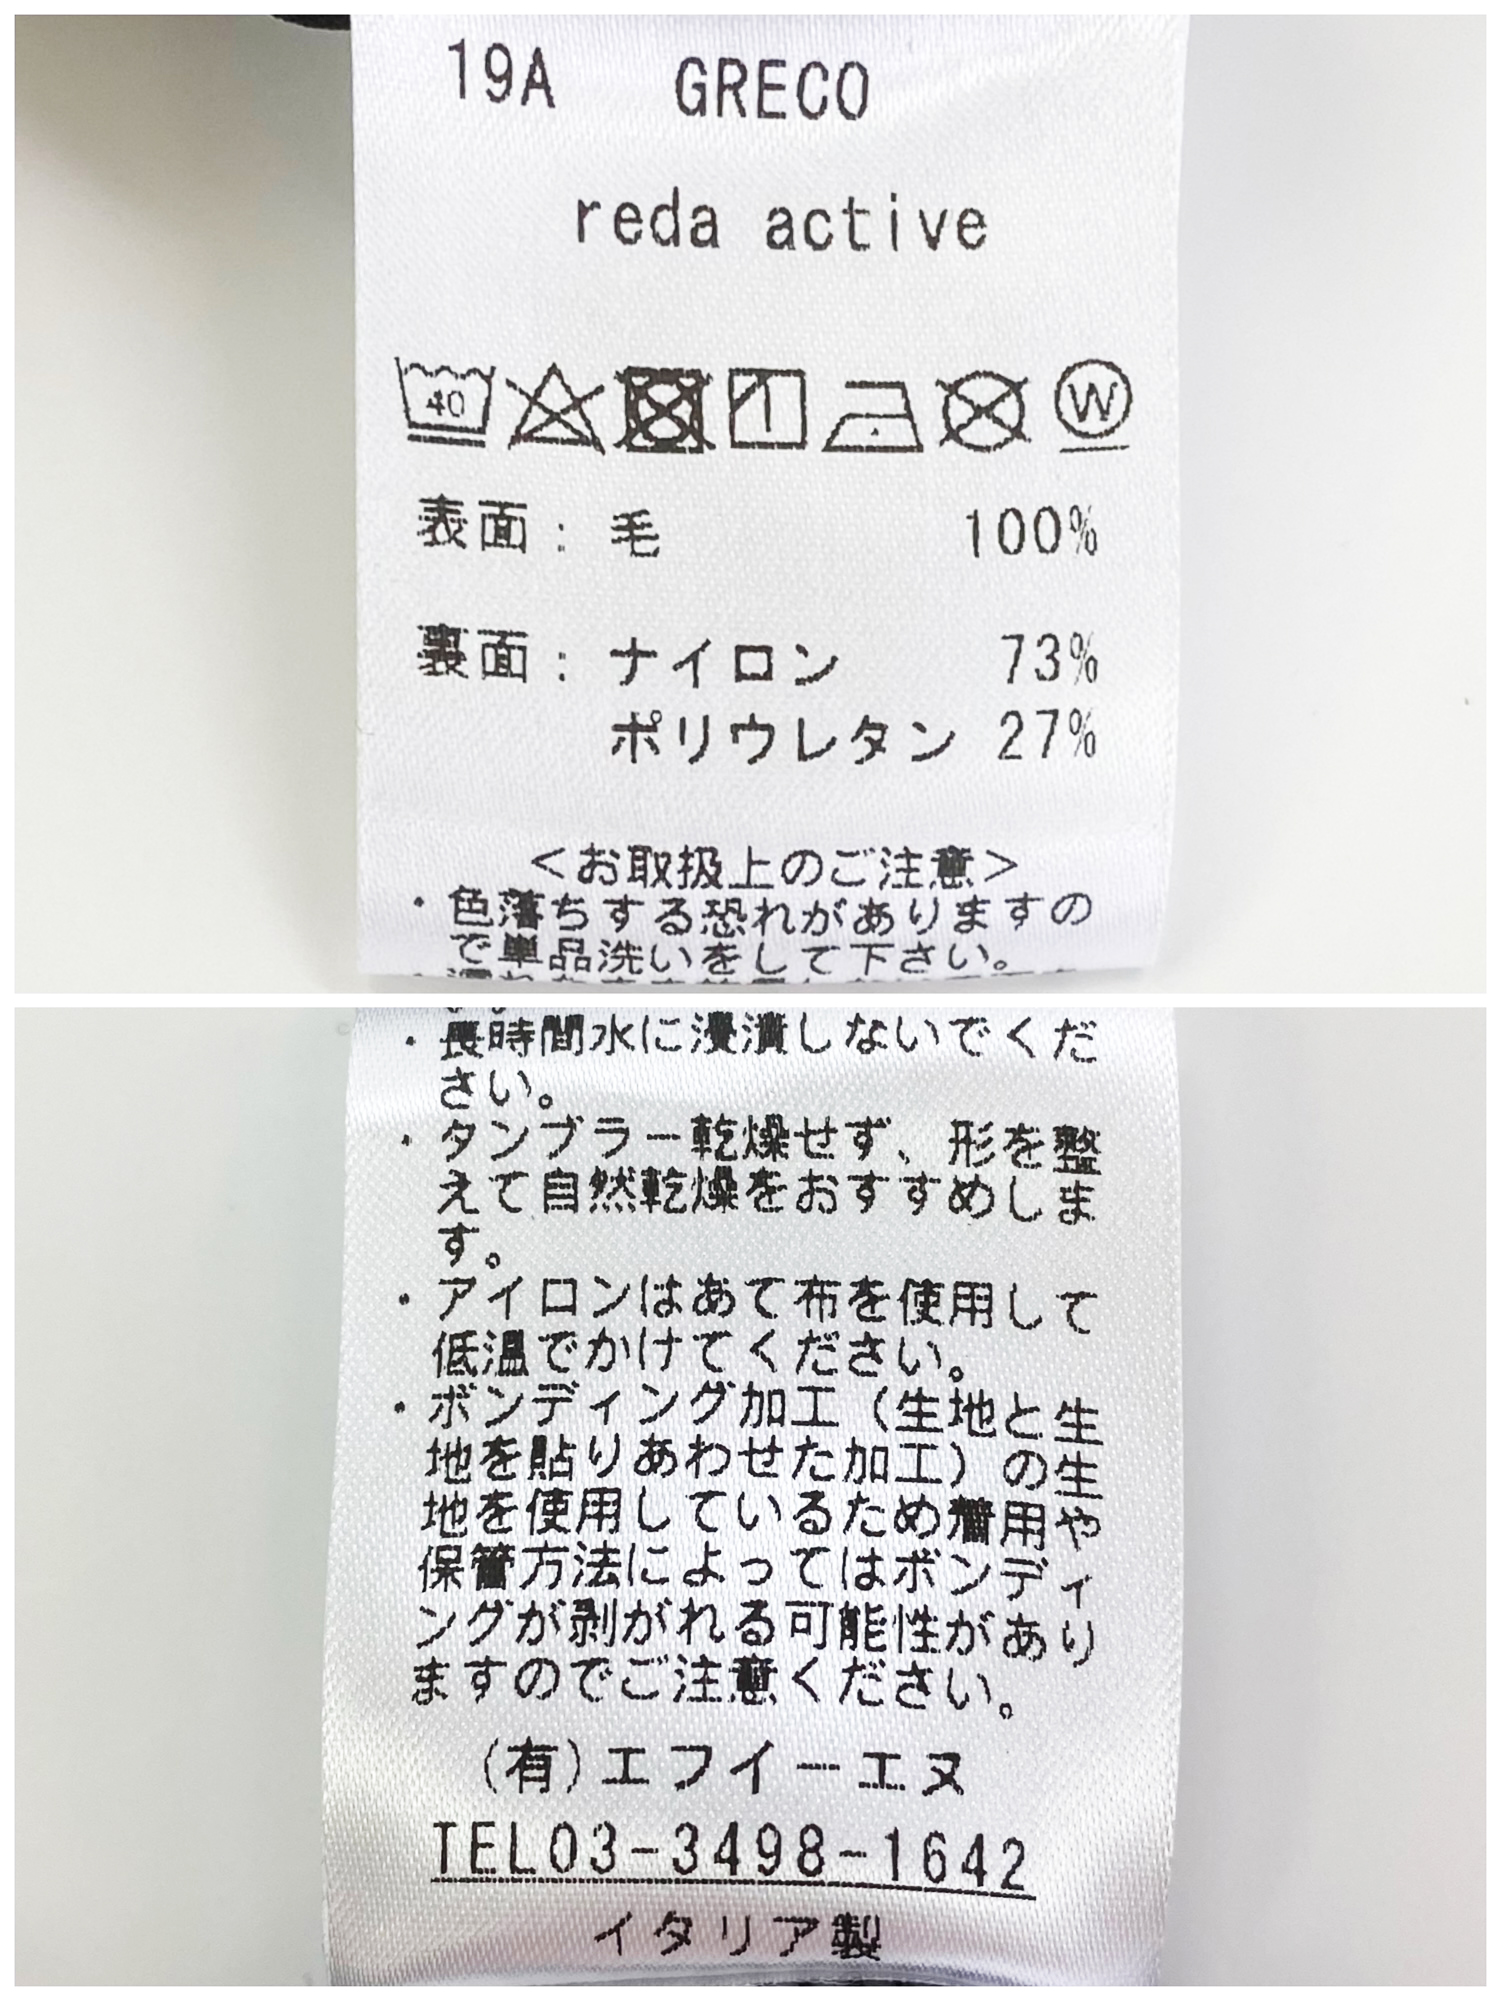 19A GRECO
reda active
40
W
表面: 毛 100%
裏面: ナイロン 73%
ポリウレタン 27%
<お取扱上のご注意>
・色落ちする恐れがありますの
で単品洗いをして下さい。
・長時間水に浸漬しないでくだ
さい。
・タンブラー乾燥せず、形を整
えて自然乾燥をおすすめしま
す。
・アイロンはあて布を使用して
低温でかけてください。
・ボンディング加工(生地と生
地を貼りあわせた加工)の生
地を使用しているため着用や
保管方法によってはボンディ
ングが剥がれる可能性があり
ますのでご注意ください。
(有)エフイーエヌ
TEL03-3498-1642
イタリア製